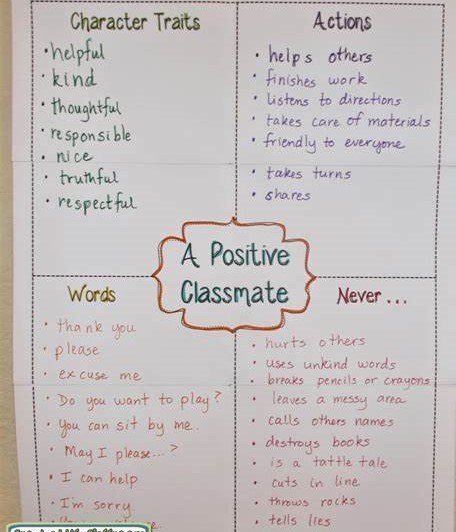 Character Traits
• helpful
• kind
• thoughtful
• responsible
• nice
• truthful
• respectful
Actions
• helps others
• finishes work
• listens to directions
• takes care of materials
• friendly to everyone
• takes turns
• shares
A Positive
Classmate
Words
• thank you
• please
• excuse me
• Do you want to play?
• You can sit by me.
• May I please...?
• I can help
• I'm sorry
Never ...
• hurts others
• uses unkind words
• breaks pencils or crayons
• leaves a messy area
• calls others names
• destroys books
• is a tattle tale
• cuts in line
• throws rocks
• tells lies